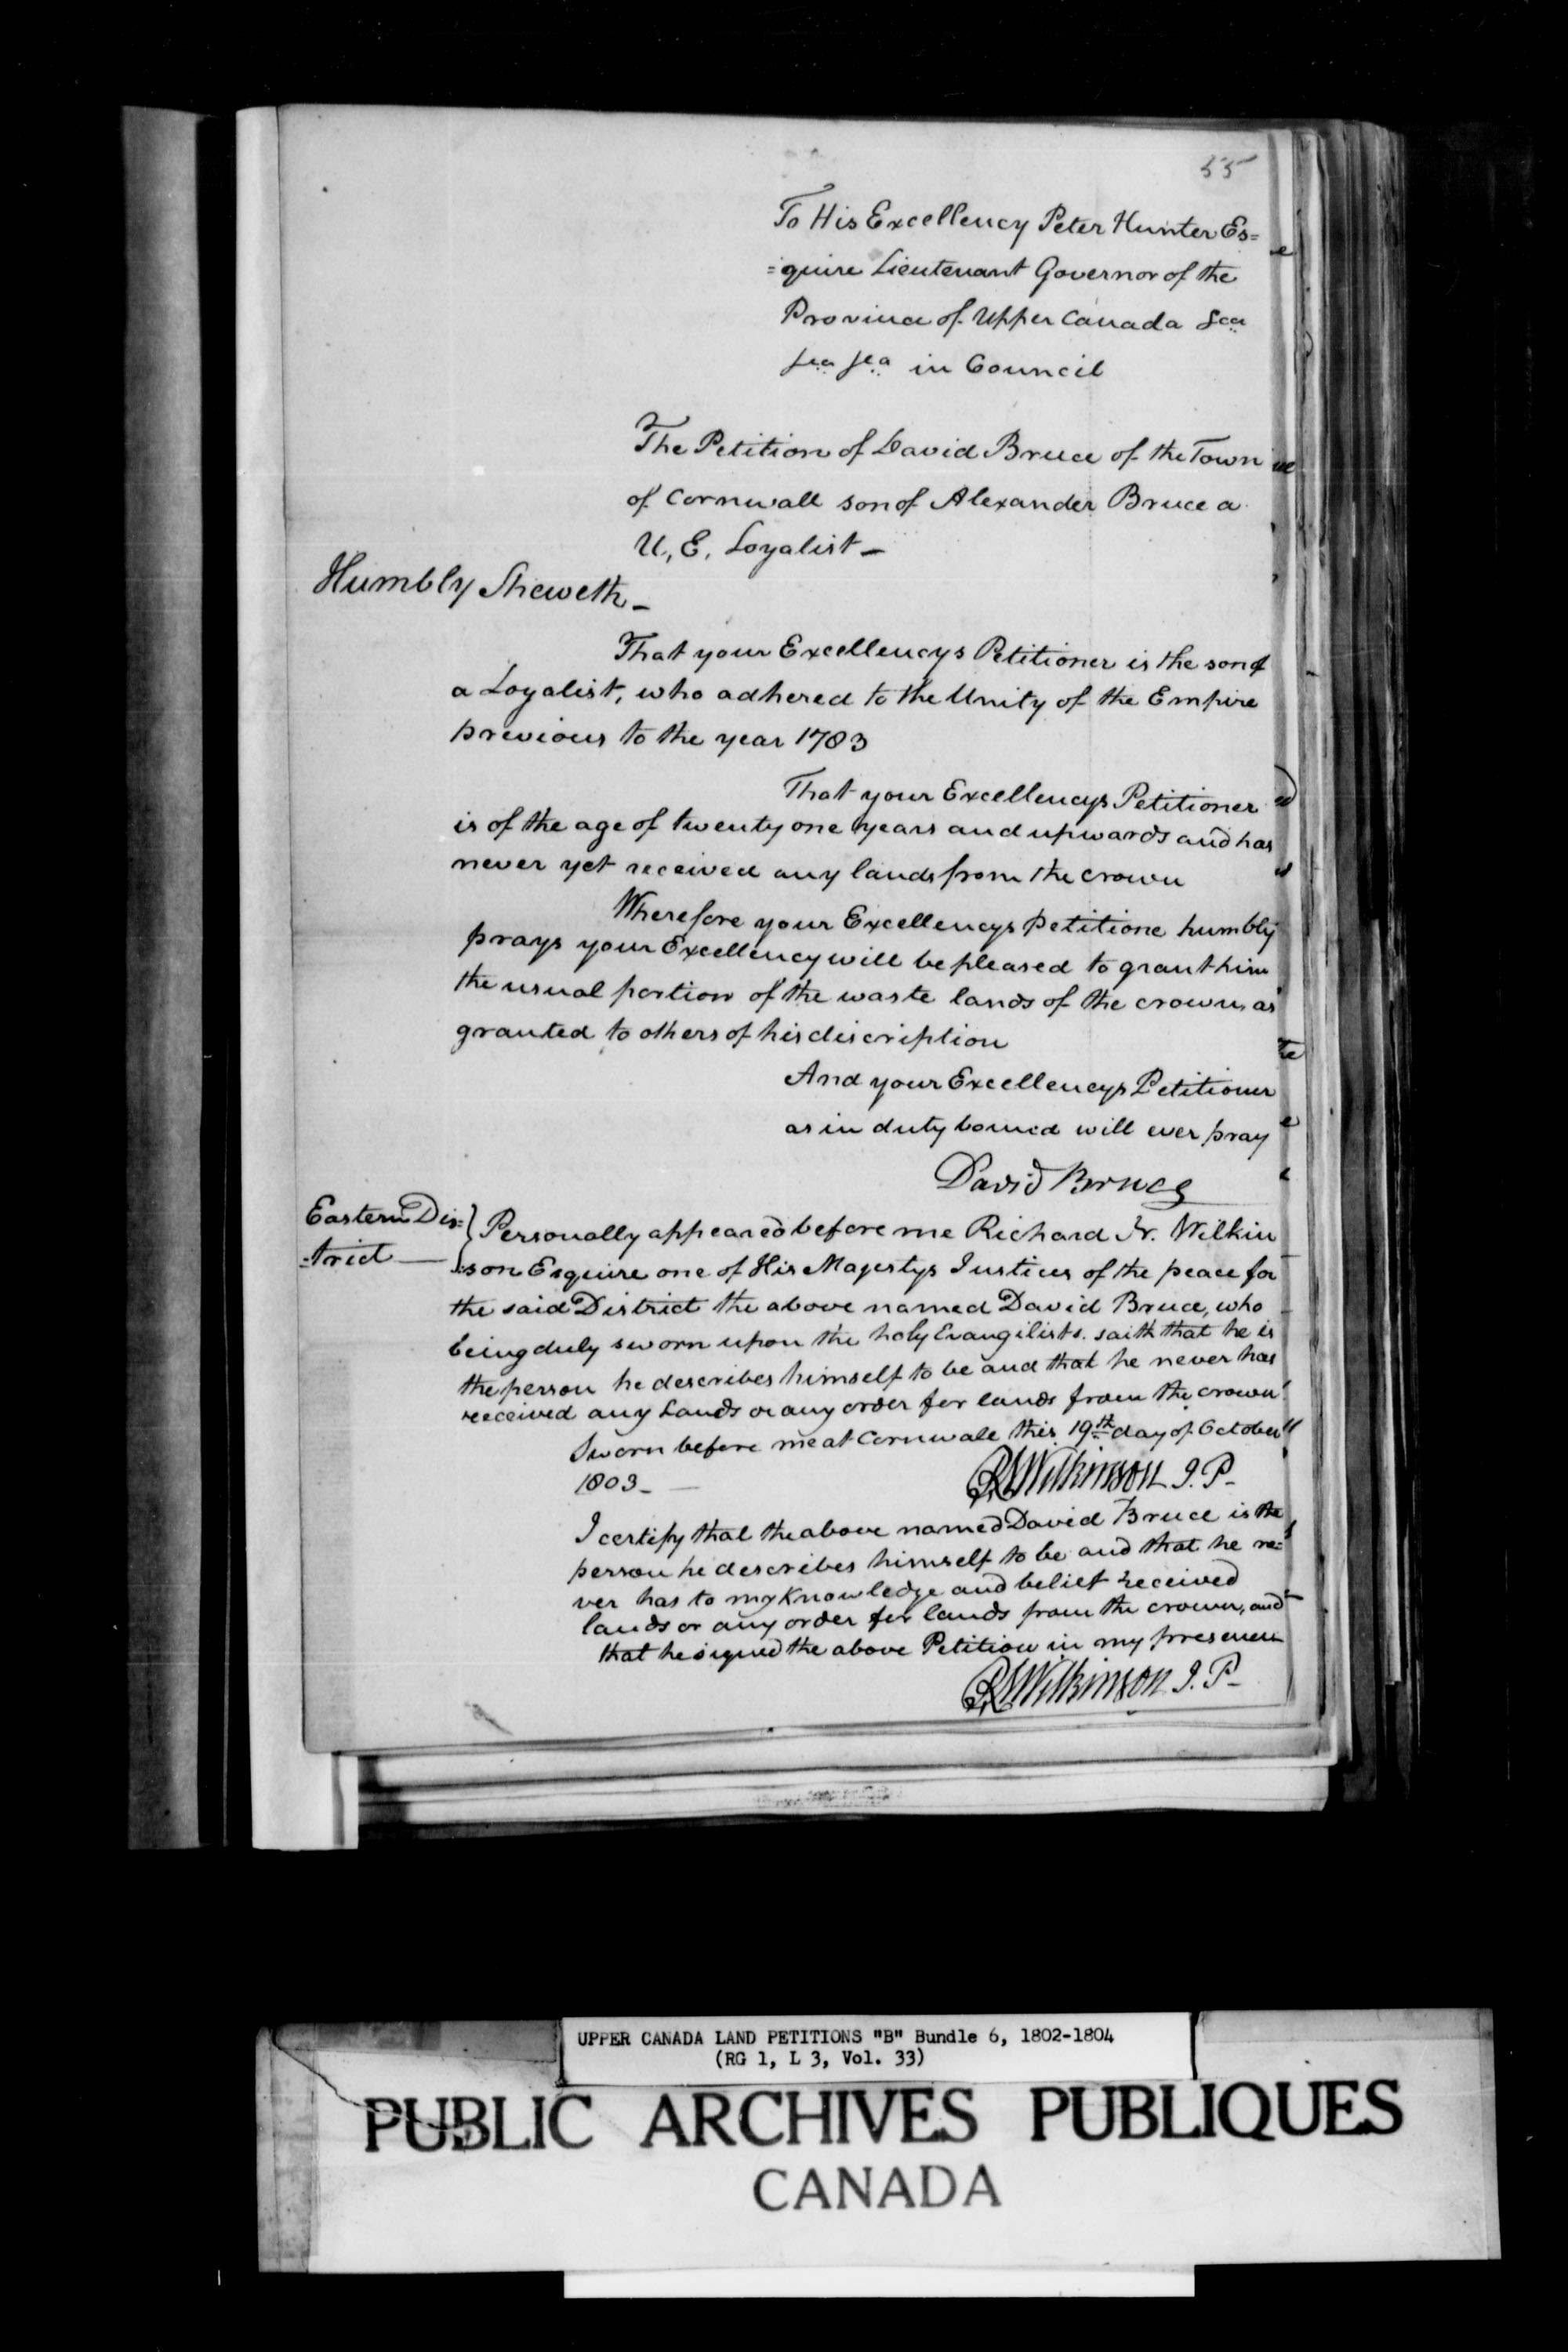 55
To His Excellency Peter Hunter Es=
=quire Lieutenant Governor of the
Province of Upper Canada &ca
&ca &ca in Council
The Petition of David Bruce of the Town
of Cornwall son of Alexander Bruce a
U, E, Loyalist –
Humbly Sheweth –
That your Excellencys Petitioner is the son of
a Loyalist, who adhered to the Unity of the Empire
previous to the year 1783
That your Excellencys Petitioner
is of the age of twenty one years and upwards and has
never yet received any lands from the crown
Wherefore your Excellencys petitione humbly
prays your Excellency will be pleased to grant him
the usual portion of the waste lands of the crown as
granted to others of his discription
And your Excellencys Petitioner
as in duty bound will ever pray
David Bruce
Eastern Dis=
=trict —
Personally appeared before me Richard Wilkin
=son Esquire one of His Majestys Justices of the peace for
the said District the above named David Bruce, who
being duly sworn upon the holy Evangilists. saith that he is
the person he describes himself to be and that he never has
received any Lands or any order for lands from the crown
Sworn before me at Cornwall this 19th day of October
1803 –
Wilkinson J. P.
I certify that the above named David Bruce is the
person he describes himself to be and that he ne=
ver has to my knowledge and belief received
lands or any order for lands from the crown, and
that he signed the above Petition in my presence
Wilkinson J. P.
UPPER CANADA LAND PETITIONS "B" Bundle 6, 1802-1804
(RG 1, L 3, Vol. 33)
PUBLIC ARCHIVES PUBLIQUES
CANADA